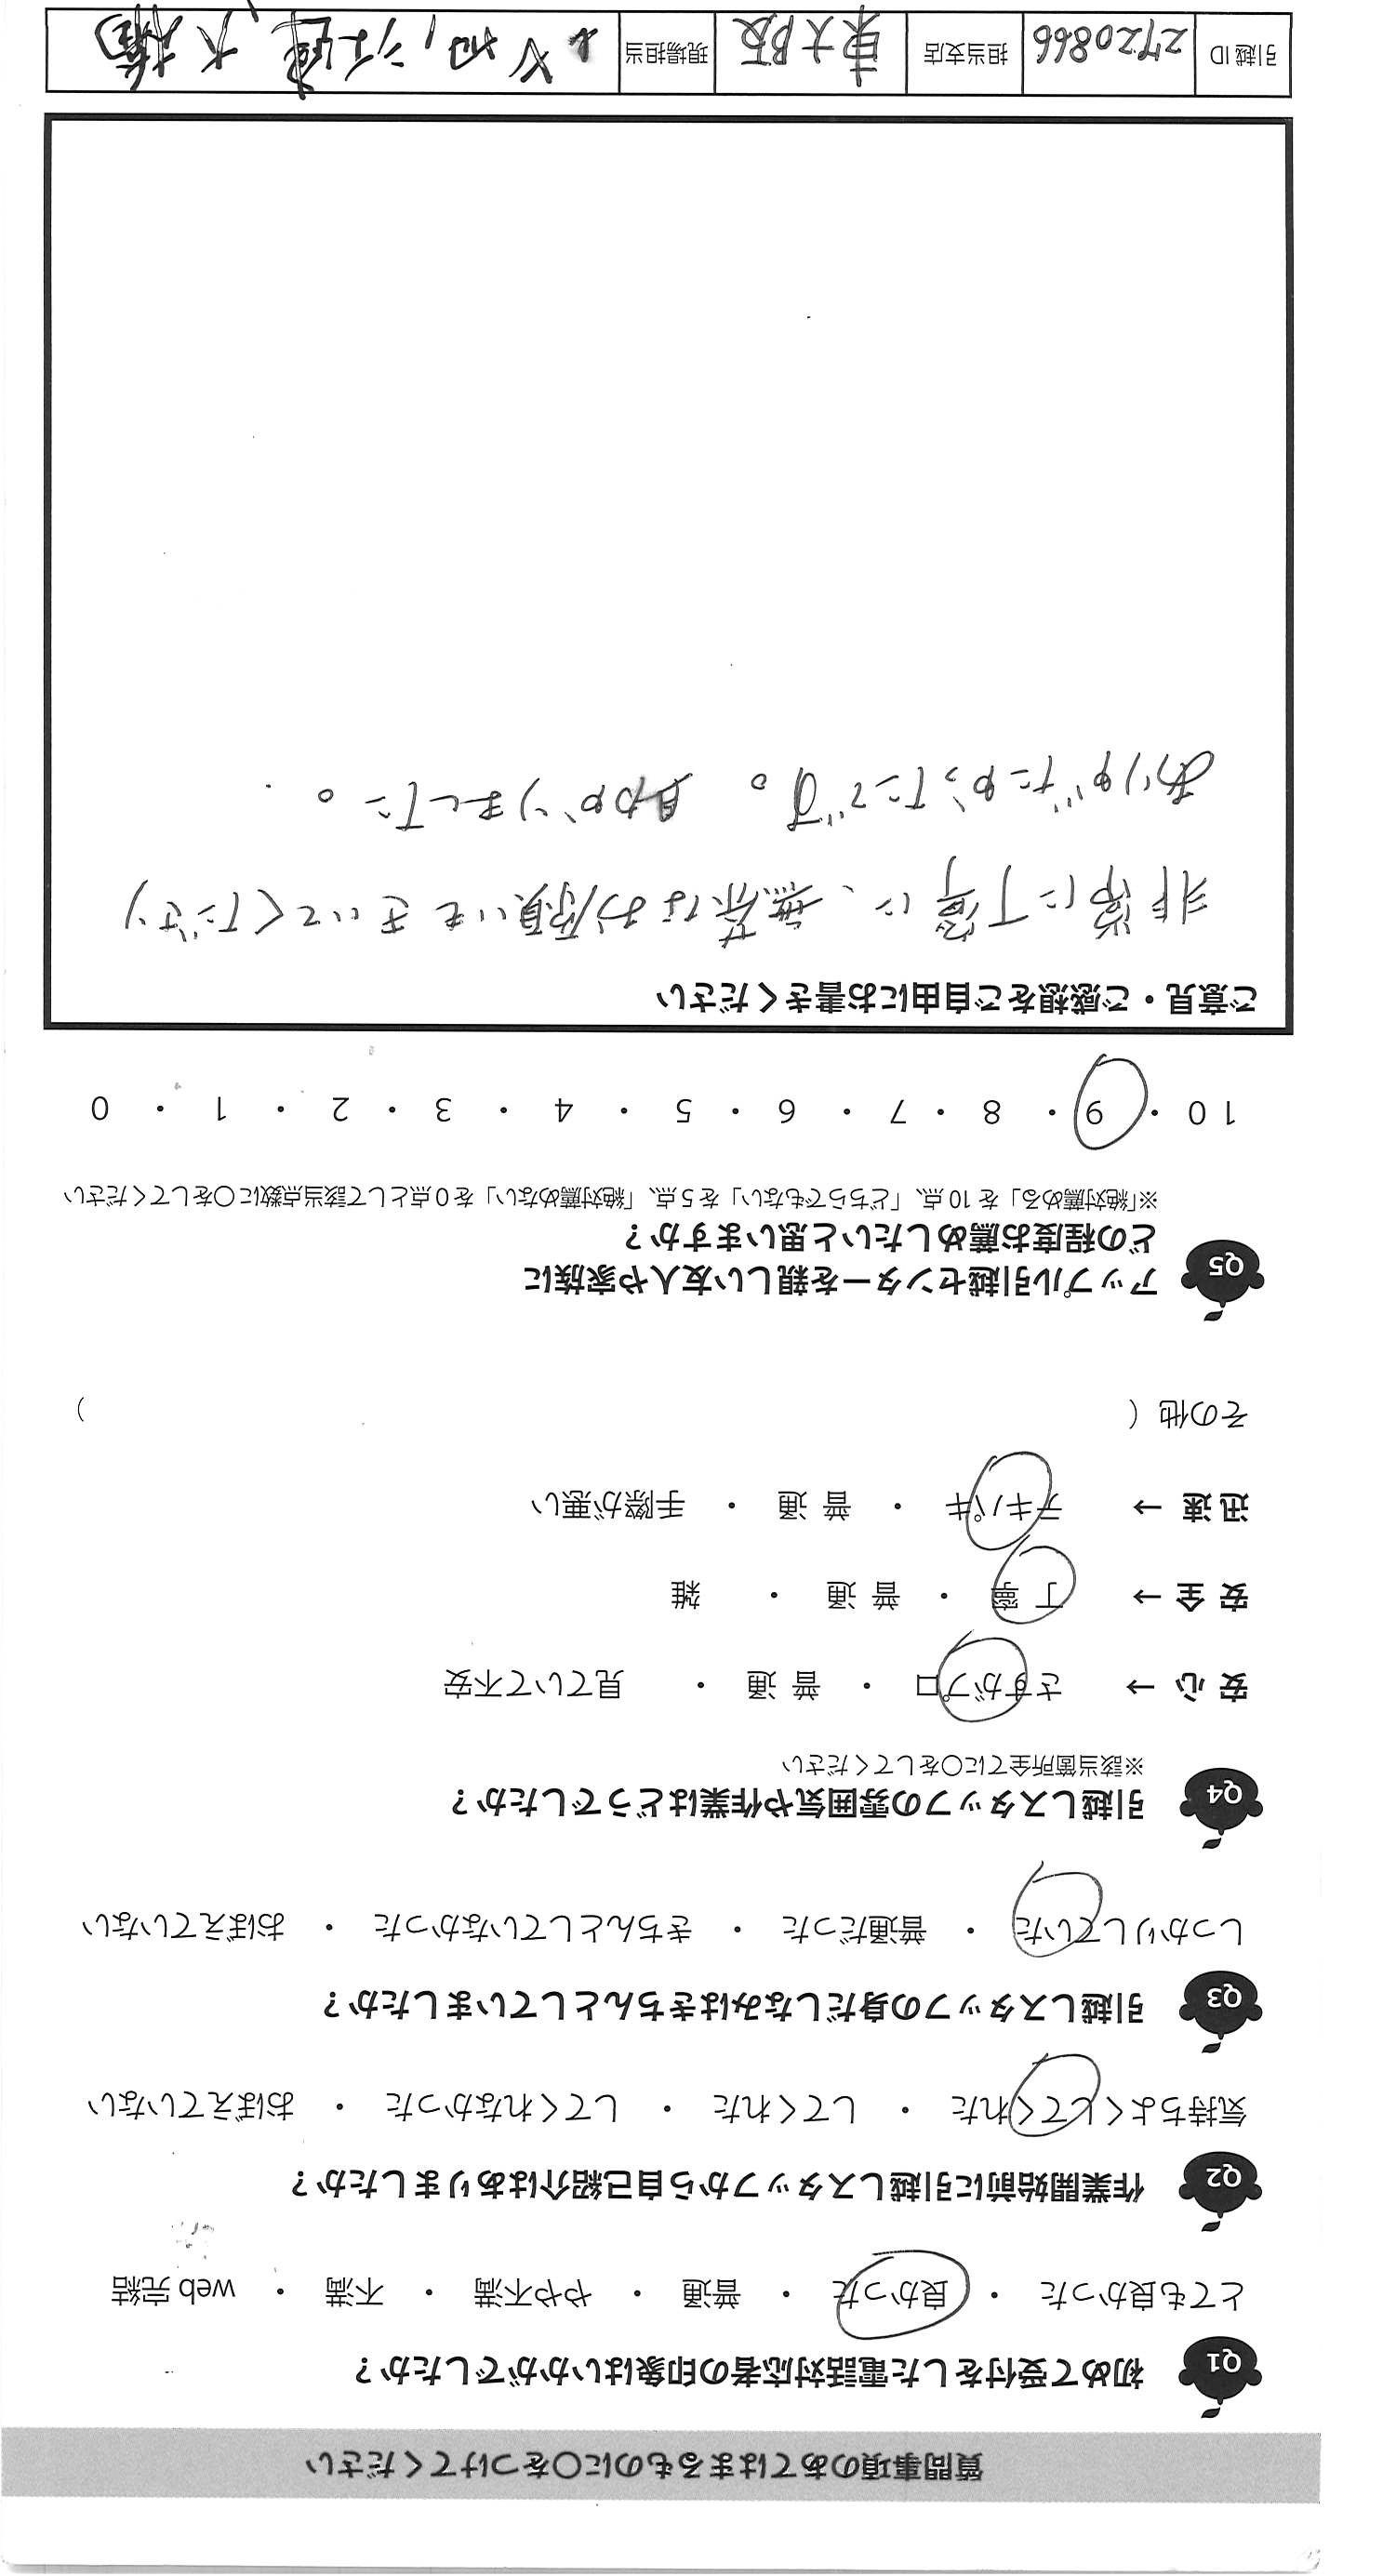 質問事項のあてはまるものに○をつけてください
Q1 初めて受付をした電話対応者の印象はいかがでしたか？
とても良かった ・ 良かった ・ 普通 ・ やや不満 ・ 不満 ・ web 完結
Q2 作業開始前に引越しスタッフから自己紹介はありましたか？
気持ちよくしてくれた ・ してくれた ・ してくれなかった ・ おぼえていない
Q3 引越しスタッフの身だしなみはきちんとしていましたか？
しっかりしていた ・ 普通だった ・ きちんとしていなかった ・ おぼえていない
Q4 引越しスタッフの雰囲気や作業はどうでしたか？
※該当箇所全てに○をしてください
安心 → さすがプロ ・ 普通 ・ 見ていて不安
安全 → 丁寧 ・ 普通 ・ 雑
迅速 → テキパキ ・ 普通 ・ 手際が悪い
その他（ ）
Q5 アップル引越センターを親しい友人や家族に
どの程度お薦めしたいと思いますか？
※「絶対薦める」を 10 点、「どちらでもない」を 5 点、「絶対薦めない」を 0 点として該当点数に○をしてください
10 ・ 9 ・ 8 ・ 7 ・ 6 ・ 5 ・ 4 ・ 3 ・ 2 ・ 1 ・ 0
ご意見・ご感想をご自由にお書きください
非常に丁寧に、無茶なお願いもきいてくださり
ありがたかったです。 助かりました。
引越 ID 2720866 担当支店 東大阪 現場担当 大橋